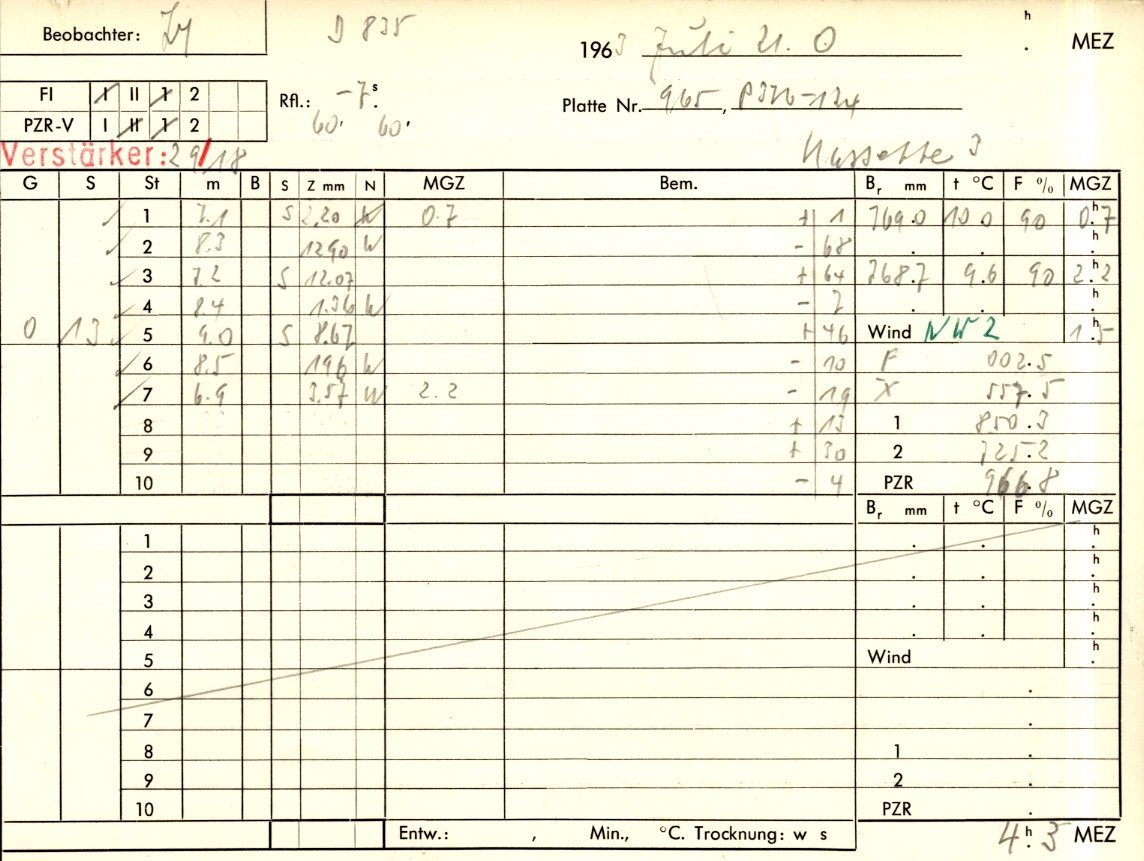 Beobachter: D 835 h
1963 Juli 21. 0 . MEZ
FI I II 1 2 Rfl.: -7.s
Platte Nr. 965,
PZR-V I II 1 2 60. 60.
Verstärker: 29/18 Kassette 3
G S St m B S Z mm N MGZ Bem. Br mm t °C F % MGZ
1 7.1 S 2.20 W 0.7 + 1 769.0 10.0 90 0.h7
2 8.3 12.90 W - 68 . . h.
3 7.2 S 12.07 + 64 768.7 9.6 90 2.h2
4 8.4 1.36 W - 2 . . h.
0 13 5 9.0 S 8.67 + 46 Wind NW 2 1.h5
6 8.5 1.96 W - 10 F 002.5
7 6.9 3.57 W 2.2 - 19 X 557.5
8 + 13 1 850.3
9 + 30 2 725.2
10 - 4 PZR 966.8
Br mm t °C F % MGZ
1 . . h.
2 . . h.
3 . . h.
4 . . h.
5 Wind h.
6 .
7 .
8 1 .
9 2 .
10 PZR .
Entw.: , Min., °C. Trocknung: w s 4.h5 MEZ